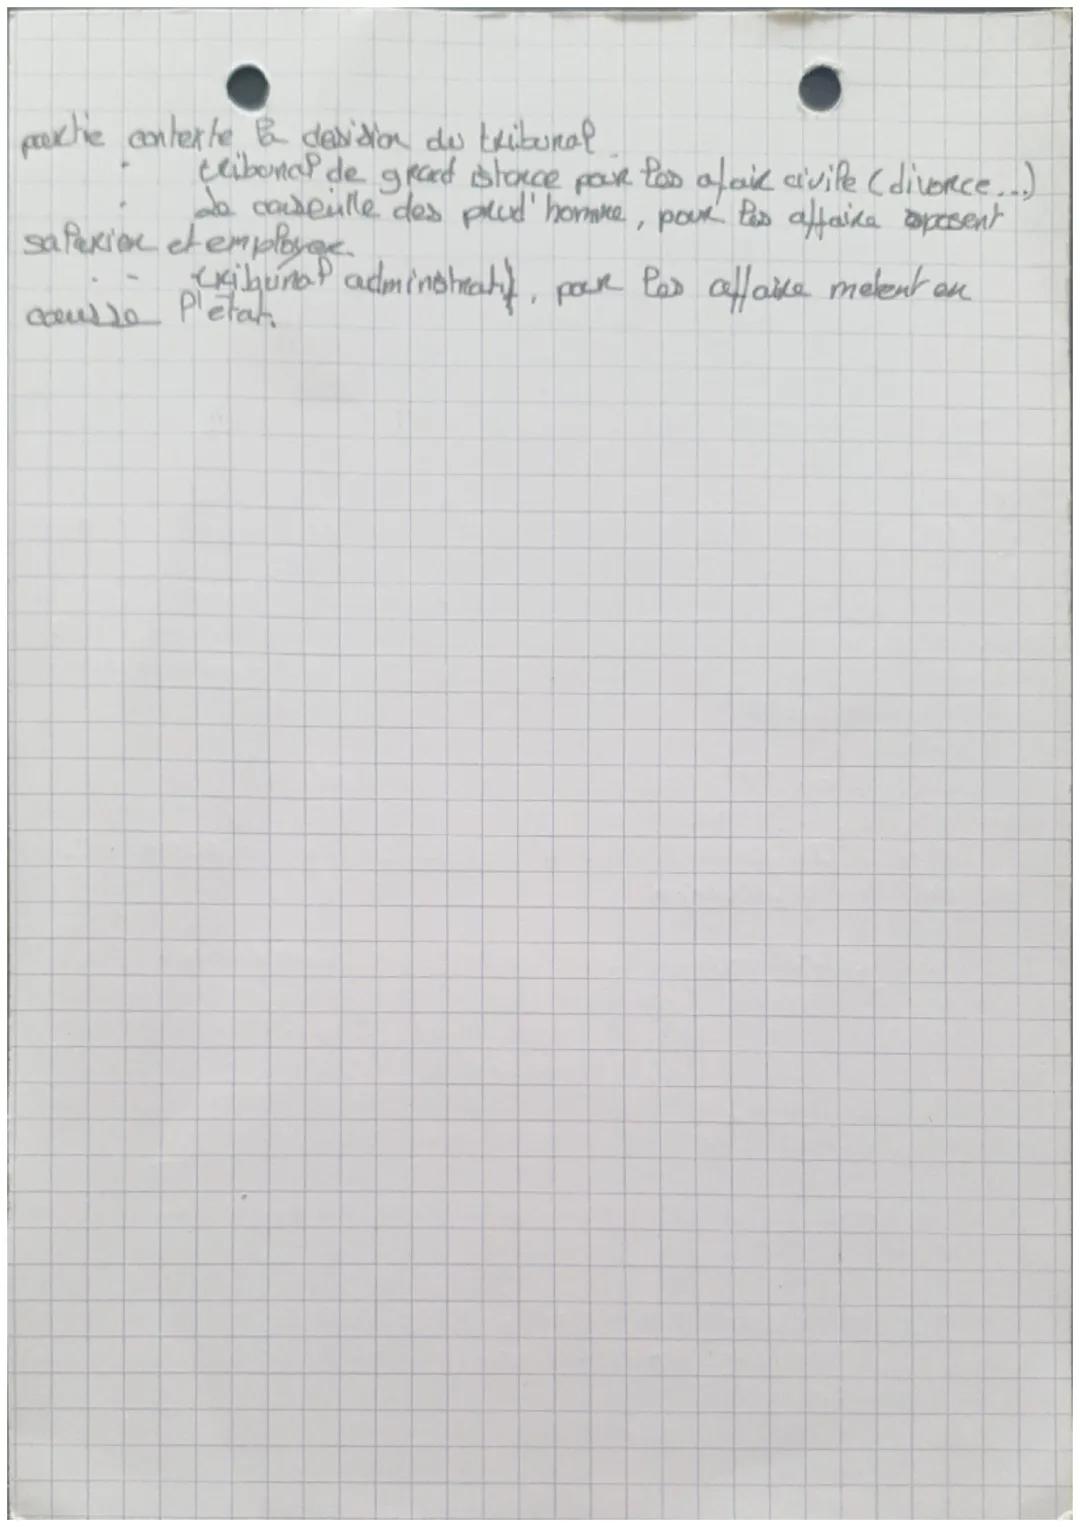 partie conterte la desision du tribunal.
. tribunal de grand istance pour les afair civile (divorce...)
. Le conseille des prud'homme, pour les affaire oposent
salarier et employer.
. - tribunal administratif, pour les affaire metent en
causse l'état.